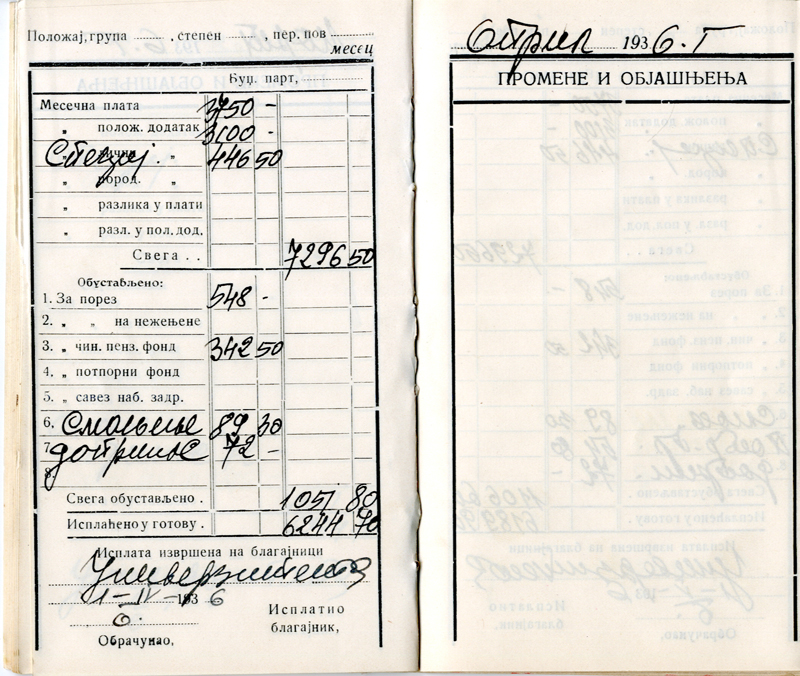 Положај, група , степен , пер. пов
месец
Буџ. парт,
Месечна плата 3750 -
„ полож. додатак 3100 -
„ „ 446 50
„ пород. „
„ разлика у плати
„ разл. у пол. дод.
Свега . . 7296 50
Обустављено:
1. За порез 548 -
2. „ „ на нежењене
3. „ чин. пенз. фонд 342 50
4. „ потпорни фонд
5. „ савез наб. задр.
6. Смањење 89 30
7. 72 -
8.
Свега обустављено . 1051 80
Исплаћено у готову . 6244 70
Исплата извршена на благајници
Универзитета
1-IV-1936
Исплатио
благајник,
Обрачунао,
Април 1936. г
ПРОМЕНЕ И ОБЈАШЊЕЊА